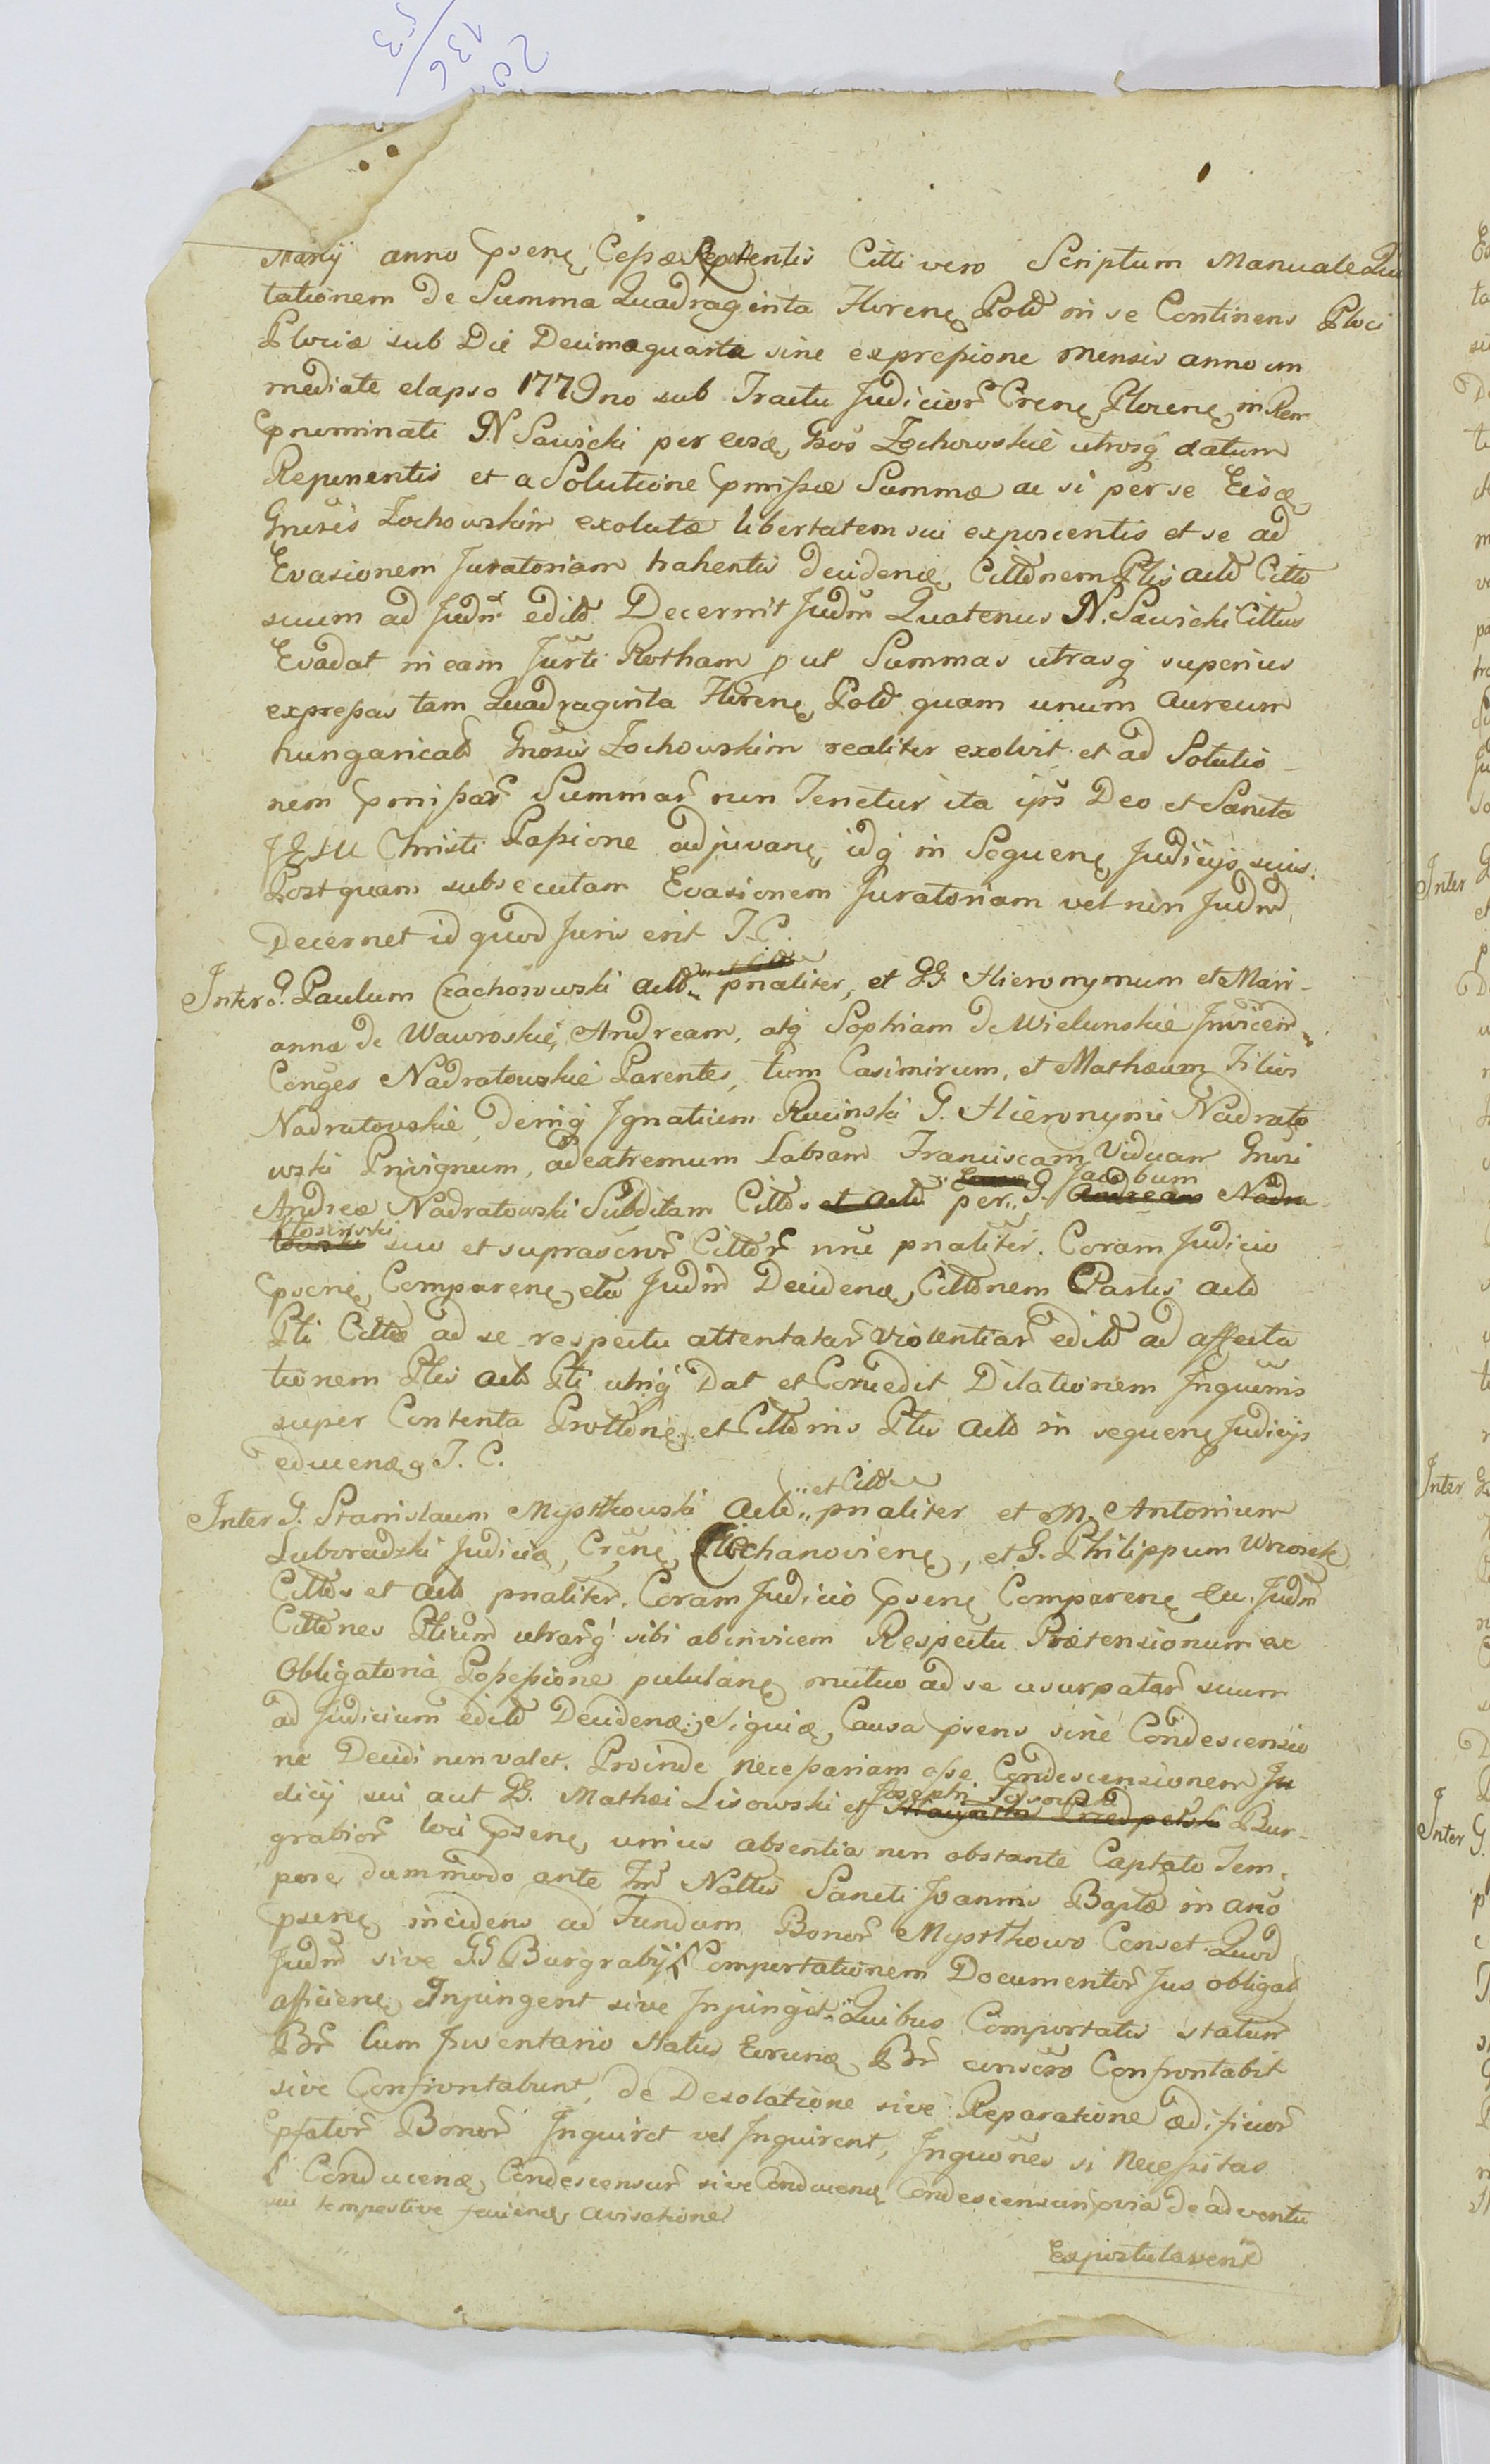 Marÿ anno psenę Cessæ Reponentis Citti vero Scriptum Manuale Qui
tationem de Summa Quadraginta Florenę Pold in se Continens Ploci
Plociæ sub Die Decimaquarta sine expressione Mensis anno im
mediate elapso 1779no sub Tractu Judicior Crenę Plocenę in Rem
pnominati N Sawicki per eosdę Gsos Żochowskie utrosq datum
Reponentis et a Solutione pmissæ Summæ ac si per se Eisdę
Gnosis Żochowskim exolutæ libertatem sui exposcentis et se ad
Evasionem Juratoriam trahentis decidendę Cittõnem Ptis actõ Cittõ
suum ad Judm editõ Decernit Judm Quatenus N. Sawicki Cittus
Evadat in eam Jurti Rotham put Summas utrasq superius
expressas tam Quadraginta Florenę Pold quam unum Aureum
hungaricalõ Gnosis Żochowskim realiter exolvit et ad Solutio
nem pmissar Summar non Tenetur ita ips Deo et Sancta
JESU Christi Passione adjuvanę, idq in Sequenę Judicÿs suis.
Postquam subsecutam Evasionem Juratoriam vel non Judm
Decernet id quod Juris erit T. C.
Inter G. Paulum Czachorowski actõ pnaliter, et GG Hieronymum et Mari-
anna de Wawroskie, Andream, atq Sophiam de Wielunskie Invicem
Conges Nadratowskie Parentes, tum Casimirum, et Mathæum Filios
Nadratowskie, deniq Ignatium Rucinski G. Hieronymi Nadrato
wski Privignum, ad extremum Labsam Franciscam Viduam Gnosi
Andreæ Nadratowski Subditam Cittõs et actõ per G. Jacobum Andream Nadra
towski Kłosinski suo et suprascror Cittõr nne pnaliter. Coram Judicio
psenę Comparenę etũ Judm Decidendę Cittõnem Partis actõ
Pti Cittæ ad se respectu attentatar Violentiar editõ ad affecta
tionem Ptis actõ Pti utriq Dat et Concedit Dilationem Inquõnis
super Contenta Prottõnę et Cittõnis Ptis actõ in sequenę Judicÿs
educendę T. C.
Inter G. Stanislaum Mystkowski Actõ et Cittõ pnaliter et M. Antonium
Luboradzki Judicę, Crenę Ciechanovienę, et G. Philippum Wrzosek
Cittõs et actõ pnaliter. Coram Judicio psenę Comparenę Eu. Judm
Cittõnes Ptium utrarq sibi abinvicem Respectu Prætensionum ex
Obligatoria Possessione pululanę mutuo ad se usurpatar suum
ad Judicium editõ Decidendę. Siquidę, Causa psens sine Condescensio
ne Decidi non valet. Proinde necessariam esse Condescensionem Ju
dicÿ sui aut G. Mathæi Lisowski et Joseph Sosowski Bur-
grabior loci psenę, unius absentia non obstante Captato Tem-
pore dummodo ante Fm Nattis Sancti Joannis Baptæ in ano
psenę incidens ad Fundum Bonor Mystkowo Censet. Quod
Judm sive GG Burgrabÿ Comportationem Documentor Jus obligatõ
afficienę Injungent sive Injungit. Quibus Comportatis statum
Br cum Inventario status Eorundę Br conscro Confrontabit
sive Confrontabunt, de Desolatione sive Reparatione ædificior
pfator Bonor Inquiret vel Inquirent, Inquones si Necessitas
Conducendę Condescensur sive Conducendę Condescensur pvia de adventu
sui tempestive faciendę avisatione
Expostulaverit